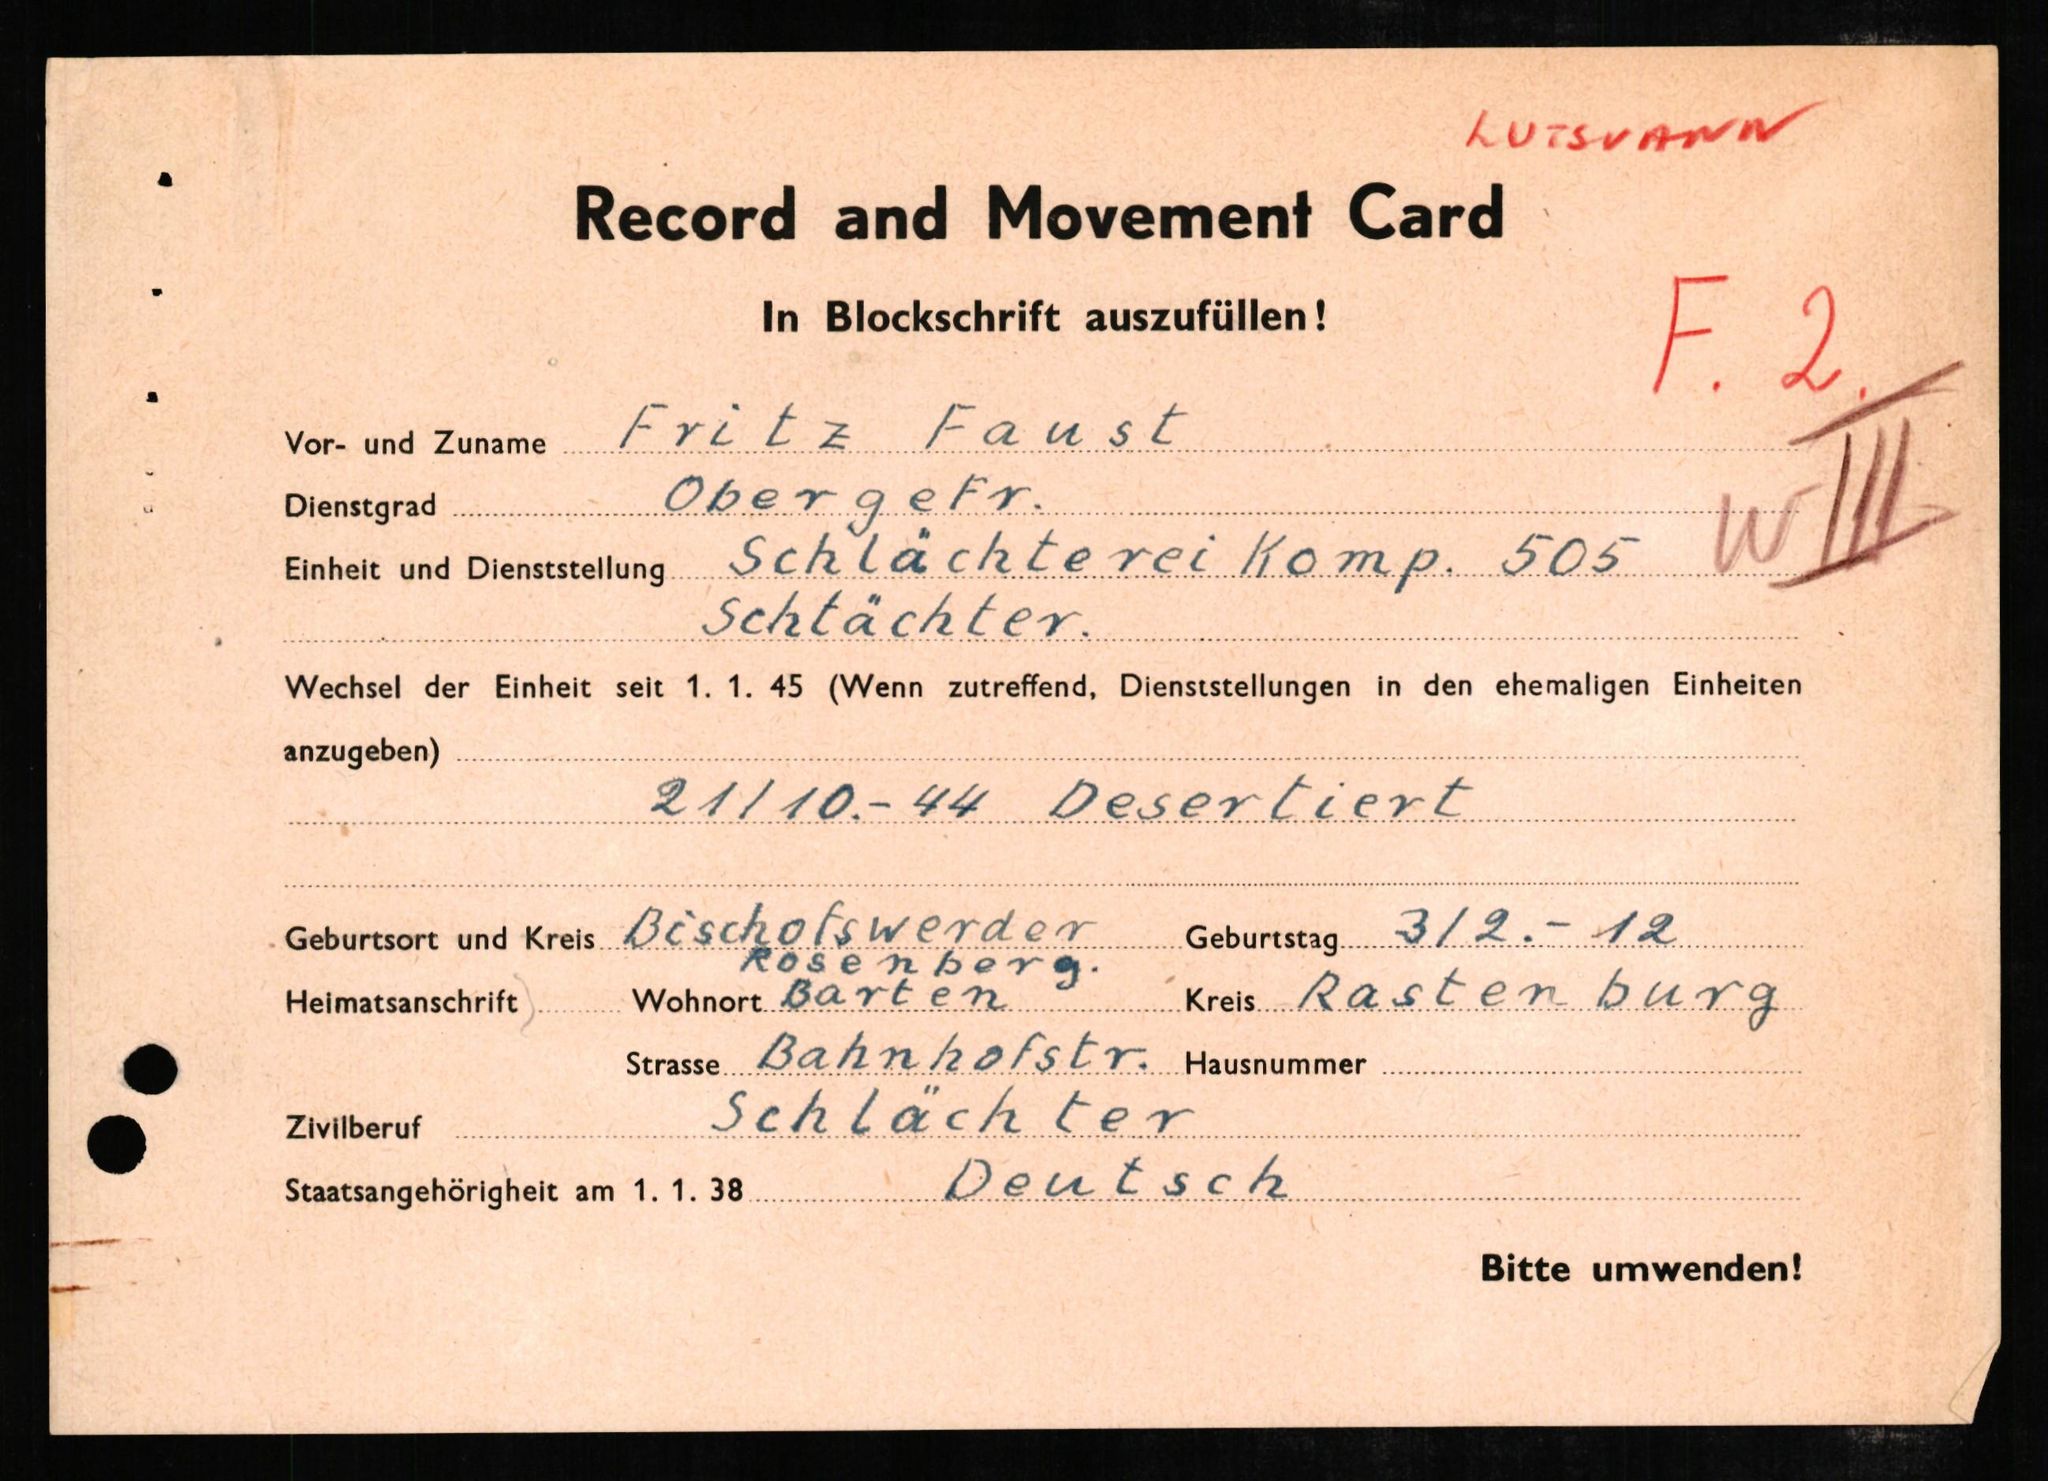 LUTSVANN
Record and Movement Card
In Blockschrift auszufüllen!
F. 2.
Vor- und Zuname Fritz Faust
Dienstgrad Obergefr.
W III
Einheit und Dienststellung Schlächterei Komp. 505
Schlächter.
Wechsel der Einheit seit 1. 1. 45 (Wenn zutreffend, Dienststellungen in den ehemaligen Einheiten
anzugeben)
21/10.-44 Desertiert
Geburtsort und Kreis Bischofswerder Geburtstag 3/2.-12
Rosenberg.
Heimatsanschrift Wohnort Barten Kreis Rastenburg
Strasse Bahnhofstr. Hausnummer
Zivilberuf Schlächter
Staatsangehörigheit am 1. 1. 38 Deutsch
Bitte umwenden!